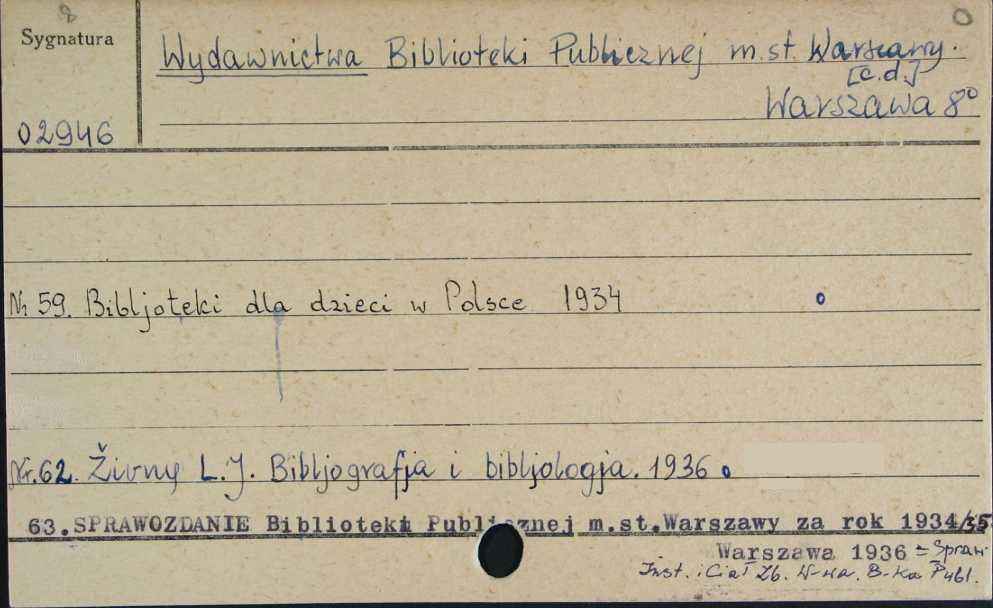 8
Sygnatura
Wydawnictwa Biblioteki Publicznej m.st. Warszawy.
[c.d.]
Warszawa 8°
02946
Nr 59. Bibljoteki dla dzieci w Polsce 1934
Nr.62. Živný L.J. Bibljografja i bibljologja. 1936
63.SPRAWOZDANIE Biblioteki Publicznej m.st.Warszawy za rok 1934/35
Warszawa 1936 = Spraw.
Inst. i Ciał Zb. W-wa. B-ka Publ.